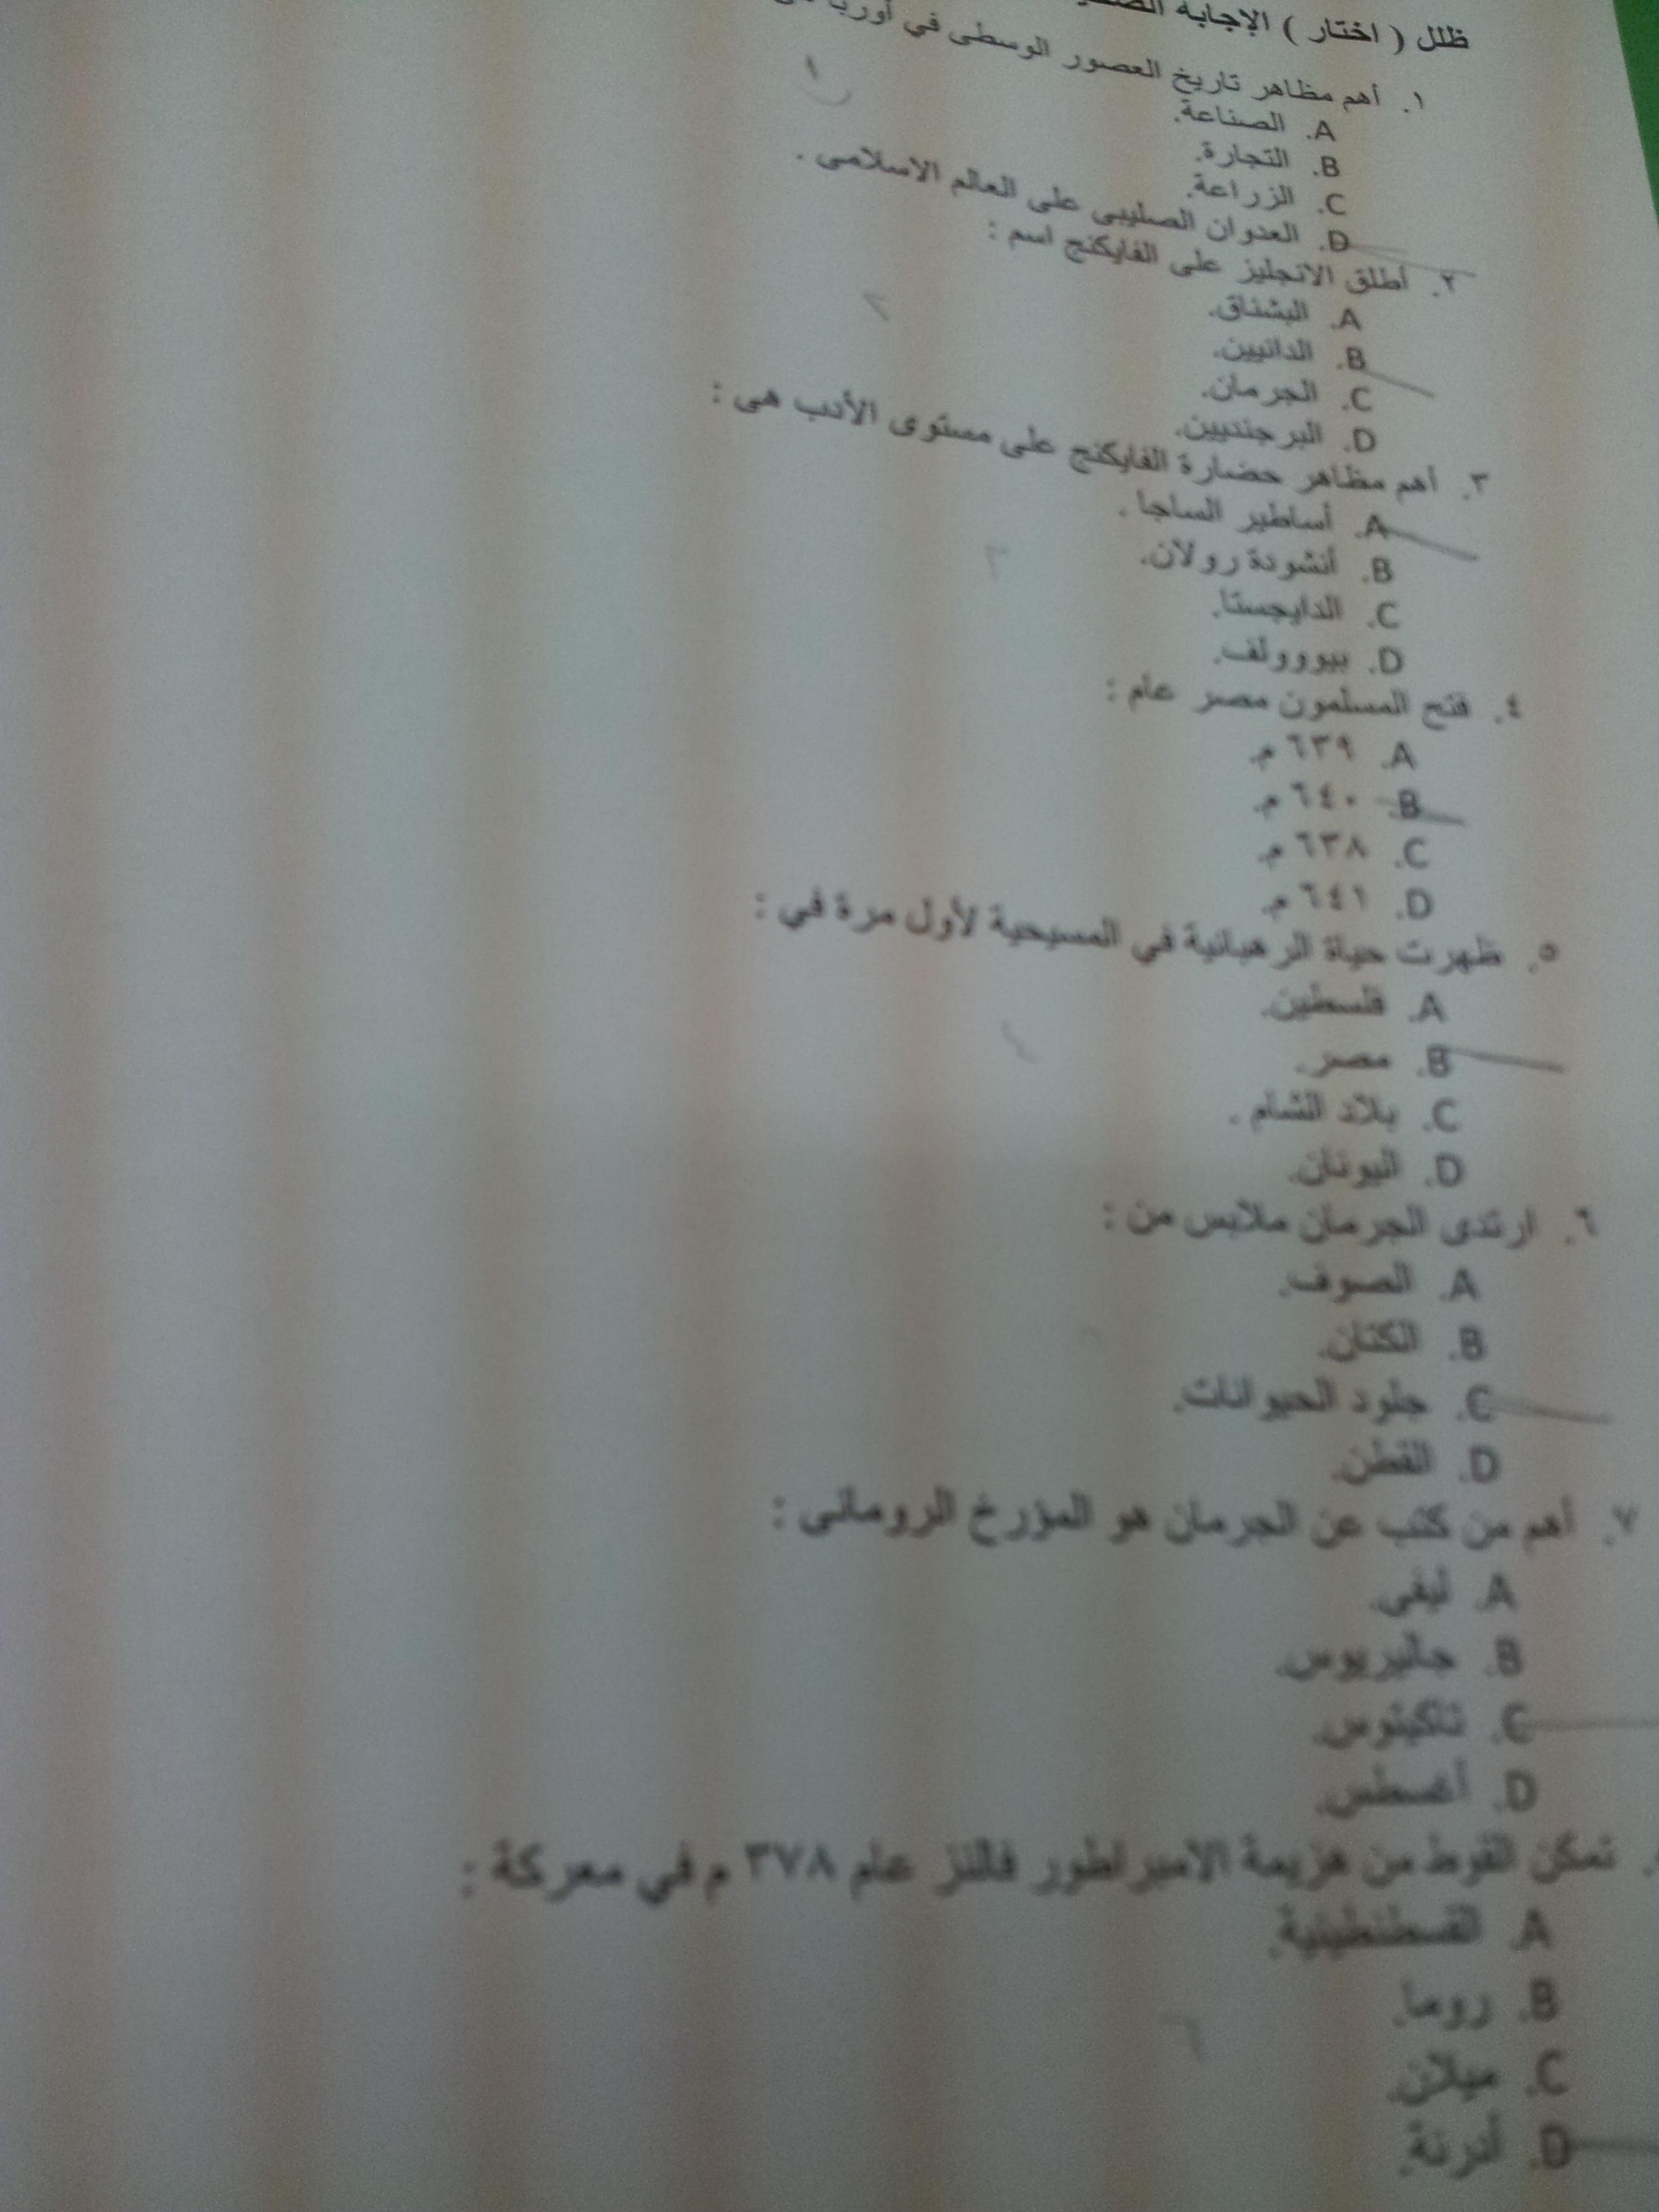 ظلل ( اختار ) الإجابة
١. أهم مظاهر تاريخ العصور الوسطى في أوربا
A. الصناعة.
B. التجارة.
C. الزراعة.
D. العدوان الصليبى على العالم الاسلامى .
٢. أطلق الانجليز على الفايكنج اسم :
A. البشناق.
B. الدانيين.
C. الجرمان.
D. البرجنديين.
٣. أهم مظاهر حضارة الفايكنج على مستوى الأدب هى :
A. أساطير الساجا .
B. أنشودة رولان.
C. الدايجستا.
D. بيووولف.
٤. فتح المسلمون مصر عام :
A. ٦٣٩ م.
B. ٦٤٠ م.
C. ٦٣٨ م.
D. ٦٤١ م.
٥. ظهرت حياة الرهبانية في المسيحية لأول مرة في :
A. فلسطين.
B. مصر.
C. بلاد الشام .
D. اليونان.
٦. ارتدى الجرمان ملابس من :
A. الصوف.
B. الكتان.
C. جلود الحيوانات.
D. القطن.
٧. أهم من كتب عن الجرمان هو المؤرخ الرومانى :
A. ليفى.
B. جاليريوس.
C. تاكيتوس.
D. أغسطس.
تمكن القوط من هزيمة الامبراطور فالنز عام ٣٧٨ م في معركة :
A. القسطنطينية.
B. روما.
C. ميلان.
D. أدرنة.
١
٢
٣
٤
٦